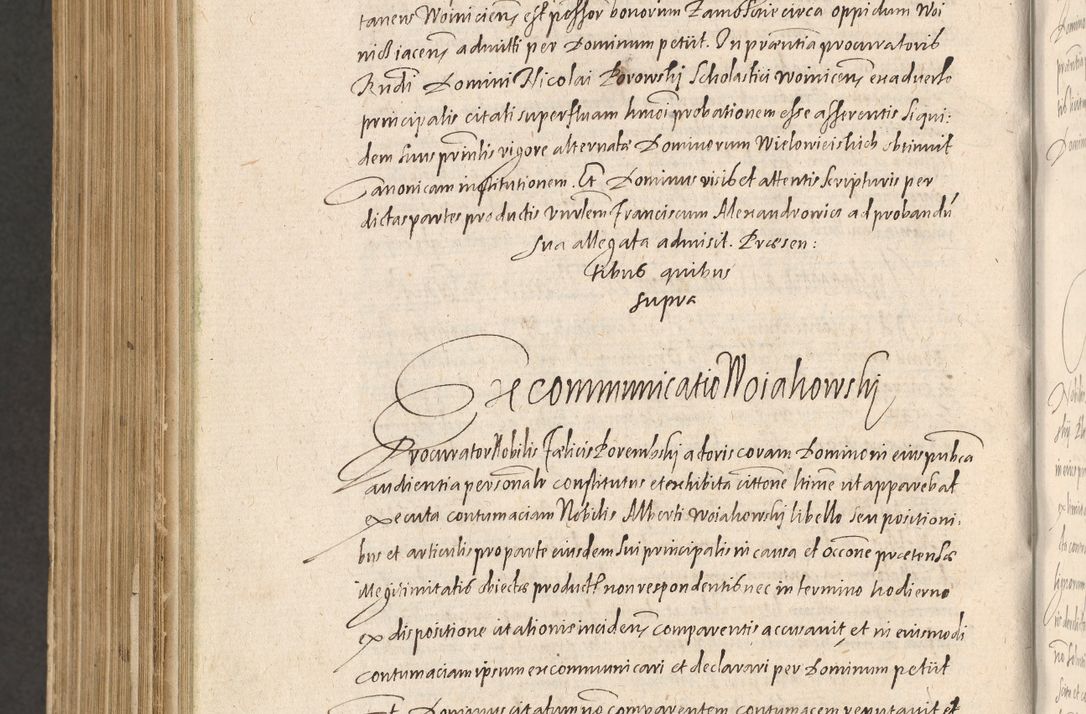 taneus Woiniciens̃ est possor bonorum Zamoscie circa oppidum Woi
nicz iacens̃ admitti per Dominum petiit. In præntia procuratoris
Rndi Domini Nicolai Borowskj Scholastici Woinicens̃ ex adverso
principalis citati superfluam hmoi probationem esse asserentis siqui:
dem suus printis vigore alternatæ Dominorum Wielowieiskich obtinuit
Canonicam institutionem. Et Dominus visis et attentis scripturis per
dictas partes productis Franciscum Alexandrowicz ad probandũ
sua allegata admisit. Præsen:
tibus quibus
supra
Excommunicatio Woiakowskj
Procurator Nobilis Fælicis Porembskj actoris coram Domino in eius pubca
audientia personalr constitutus et exhibita cittone hinne ut apparebat
executa contumaciam Nobilis Alberti Woiakowskj libello seu positioni:
bus et articulis pro parte eiusdem sui principalis in causa et occõne prætensæ
illegitimitatis obiectæ product: non respondentis nec in termino hodierno
ex dispositione citationis inciden̄ comparentis accusavit, et in eiusmodi
contumaciam ipsum excommunicari et declarari per Dominum petiit
Et Dominus citatum nõ comparentem contumacem reputavit et